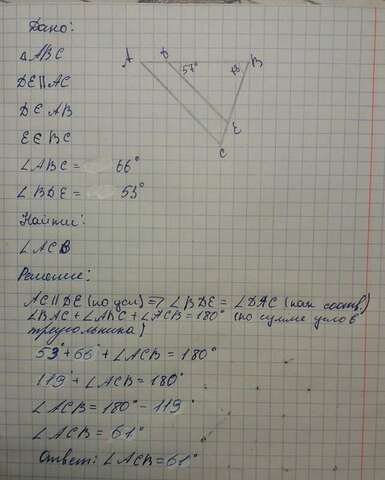 Дано:
△ABC
DE∥AC
D∈AB
E∈BC
∠ABC = 66°
∠BDE = 53°
Найти:
∠ACB
Решение:
A D B
53°
E
C
AC∥DE (по усл) => ∠BDE = ∠DAC (как соотв.)
∠BAC+∠ABC+∠ACB=180° (по сумме углов
треугольника)
53°+66°+∠ACB=180°
119°+∠ACB=180°
∠ACB=180°-119°
∠ACB=61°
Ответ: ∠ACB=61°